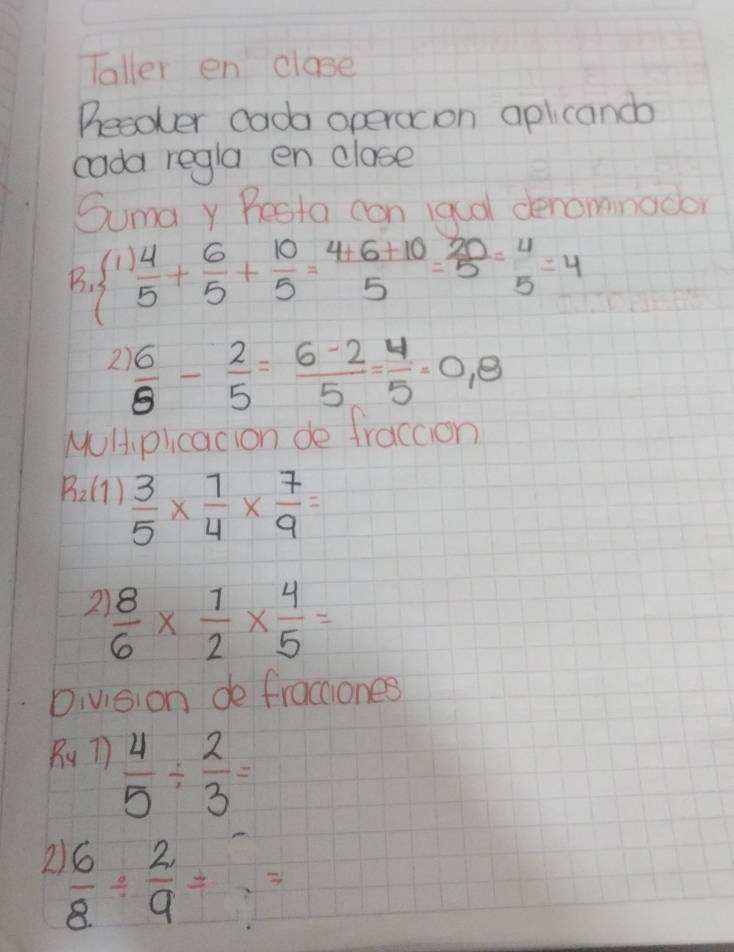 Taller en clase
Resolver cada operacion aplicando
cada regla en clase
Suma y Resta con igual denominador
R1 { (1) 4/5 + 6/5 + 10/5 = 4+6+10/5 = 20/5 = 4/5 = 4
2) 6/5 - 2/5 = 6-2/5 = 4/5 = 0,8
Multiplicacion de fraccion
R2 (1) 3/5 x 1/4 x 7/9 =
2) 8/6 x 1/2 x 4/5 =
Division de fracciones
R4 1) 4/5 ÷ 2/3 =
2) 6/8 ÷ 2/9 = =